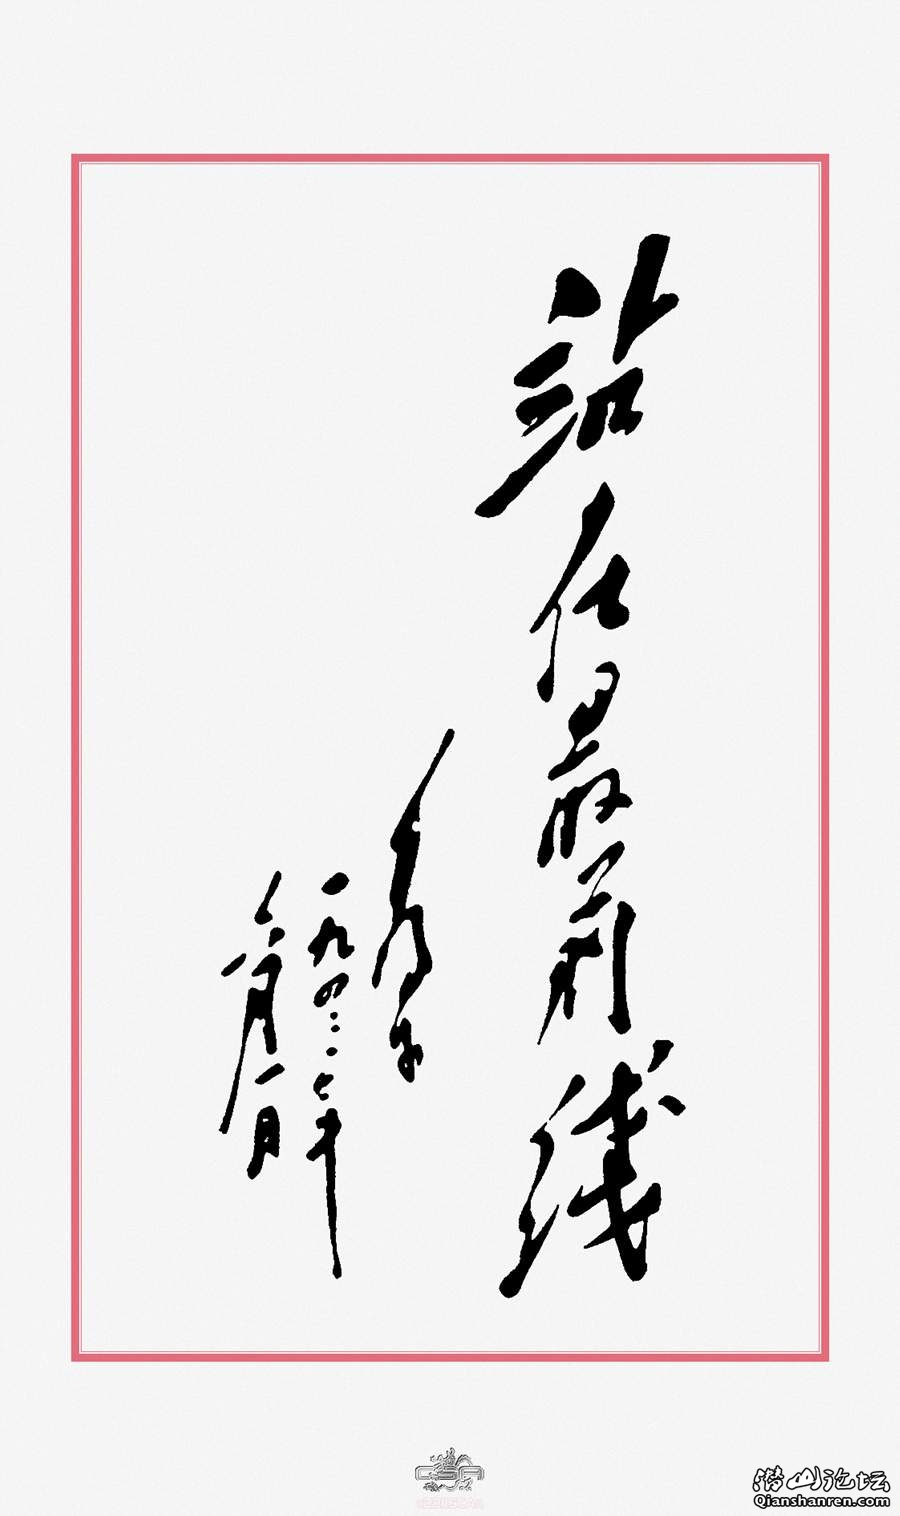 站在最前线
毛泽东
一九四三年
六月一日
潜山论坛
Qianshanren.com
CSA